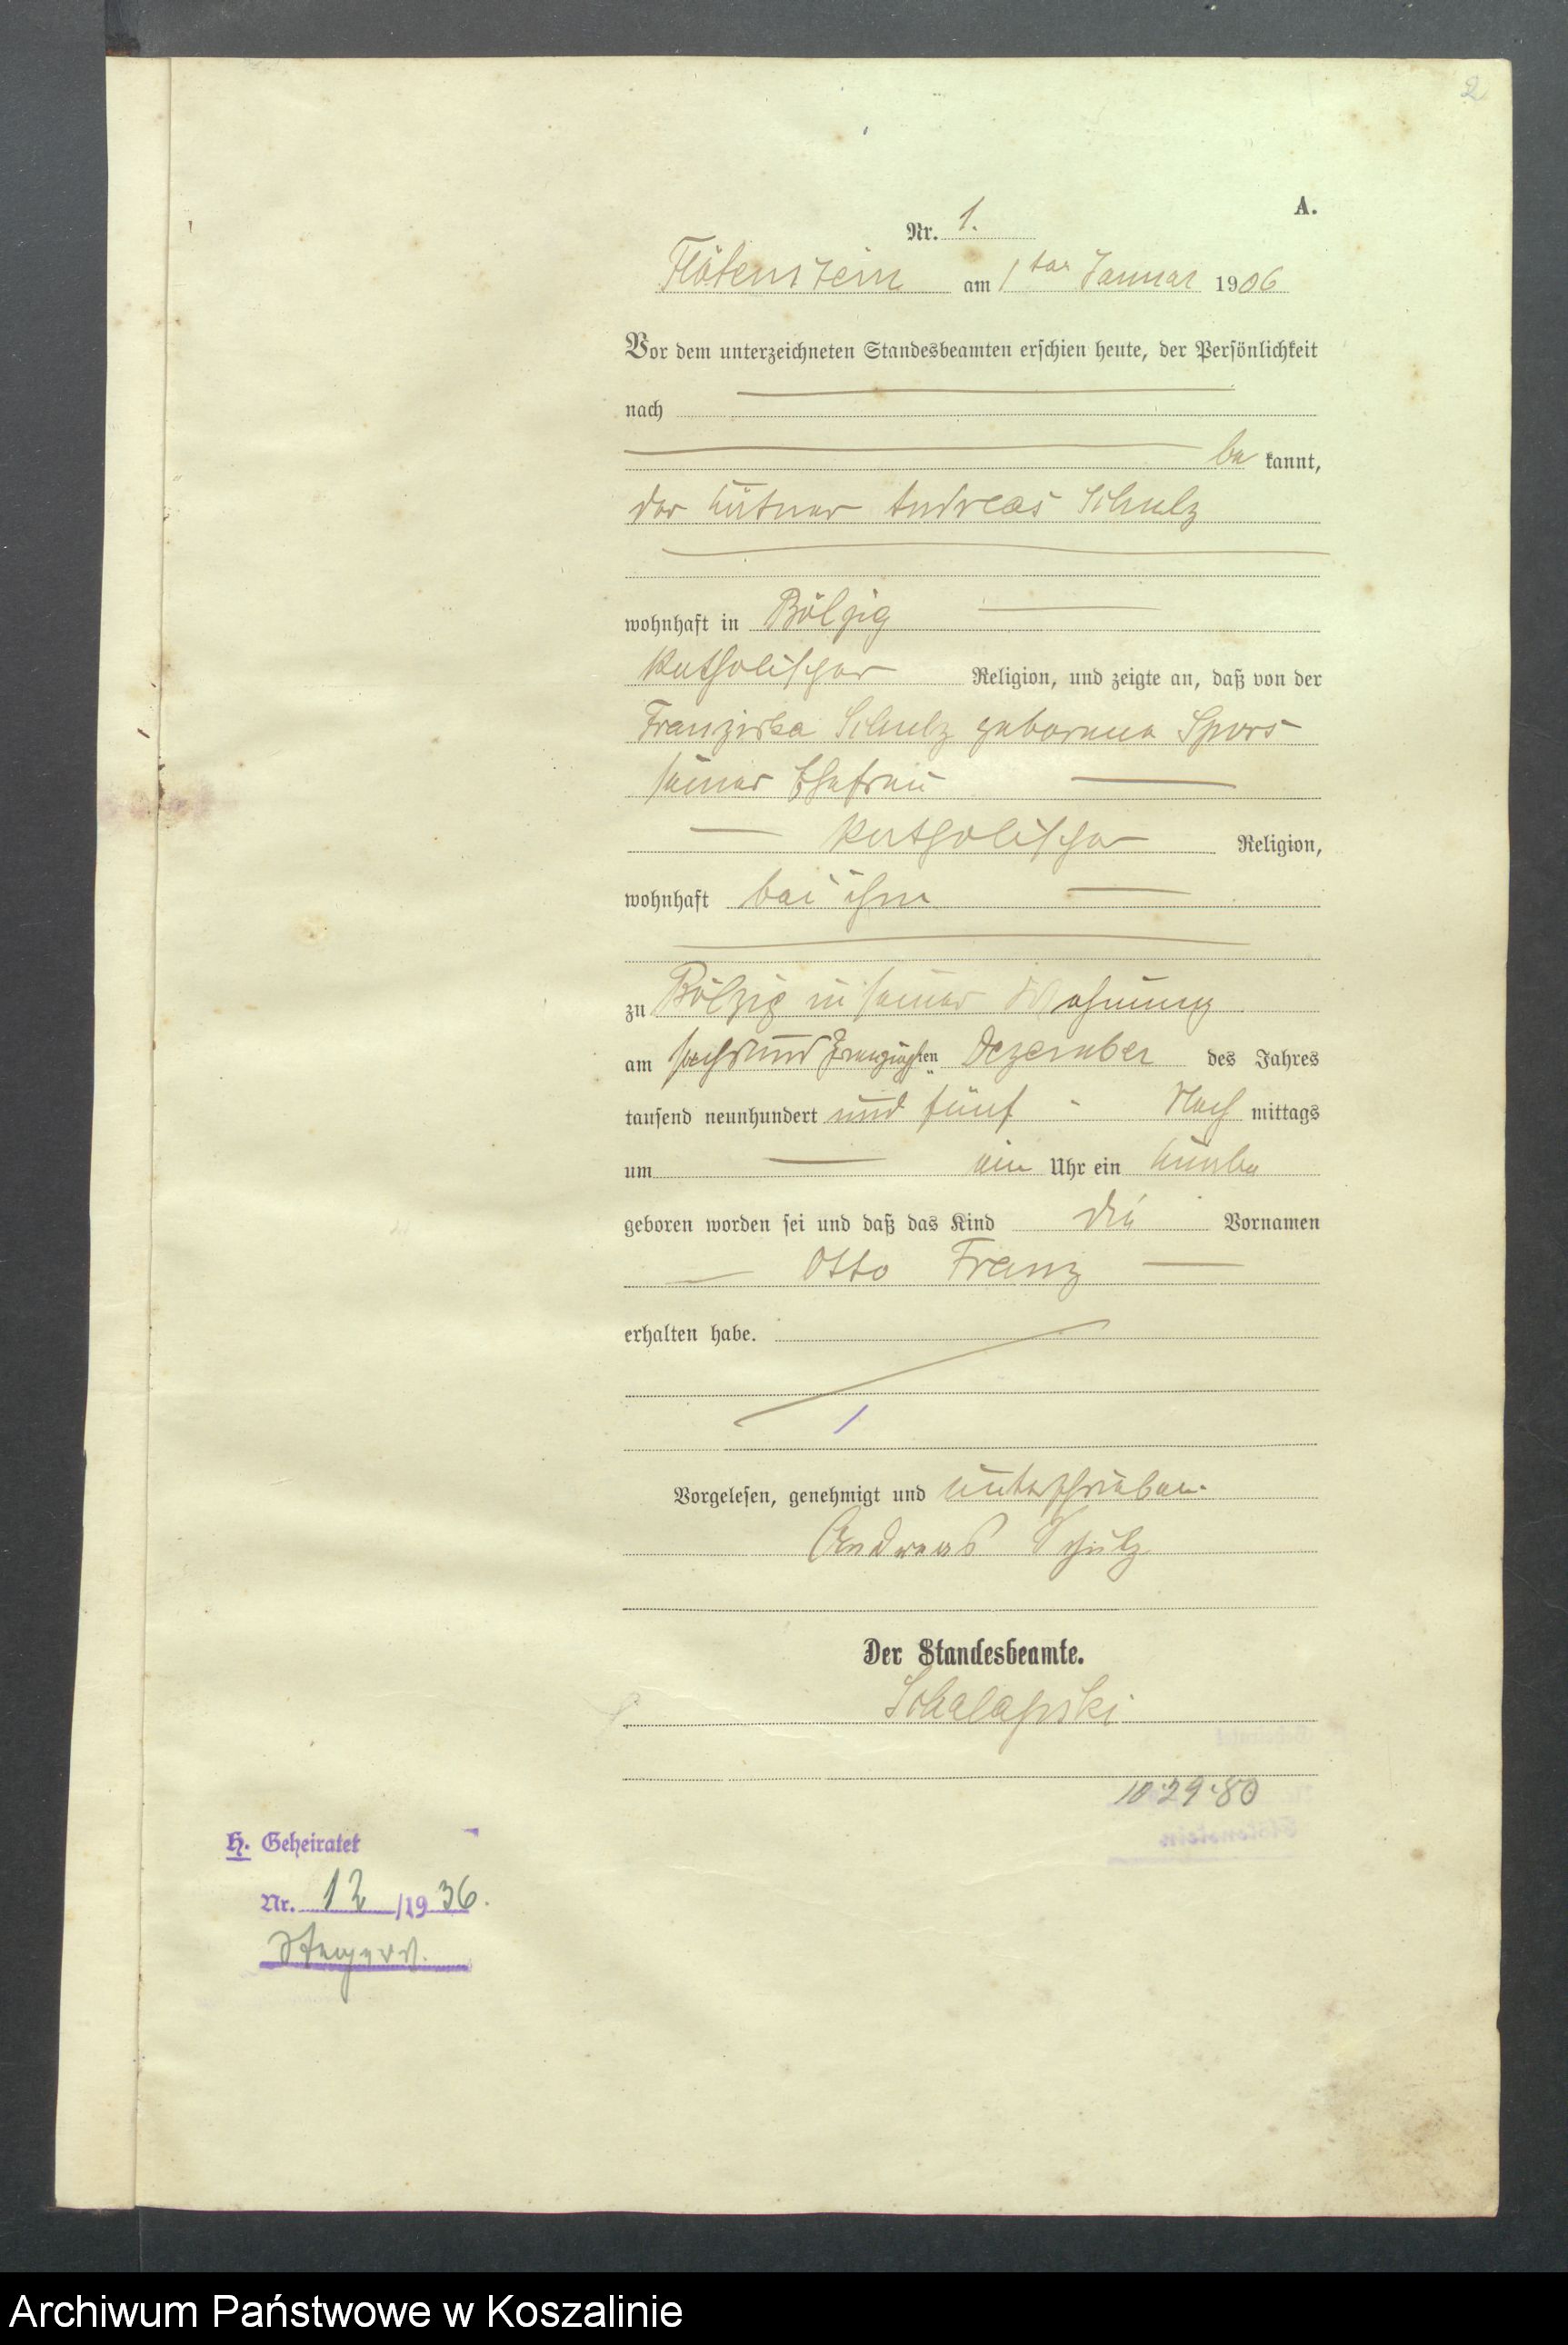 2
A.
Nr. 1.
Flötenstein am 1ten Januar 1906
Vor dem unterzeichneten Standesbeamten erschien heute, der Persönlichkeit
nach
be kannt,
der Kätner Andreas Schulz
wohnhaft in Bölzig
katholischer Religion, und zeigte an, daß von der
Franziska Schulz geborene Spors
seiner Ehefrau
katholischer Religion,
wohnhaft bei ihm
zu Bölzig in seiner Wohnung
am sechsundzwanzigsten Dezember des Jahres
tausend neunhundert und fünf Nach mittags
um ein Uhr ein Knabe
geboren worden sei und daß das Kind die Vornamen
Otto Franz
erhalten habe.
Vorgelesen, genehmigt und unterschrieben.
Andreas Schulz
Der Standesbeamte.
10.29.80
H. Geheiratet
Nr. 12 /1936.
Archiwum Państwowe w Koszalinie